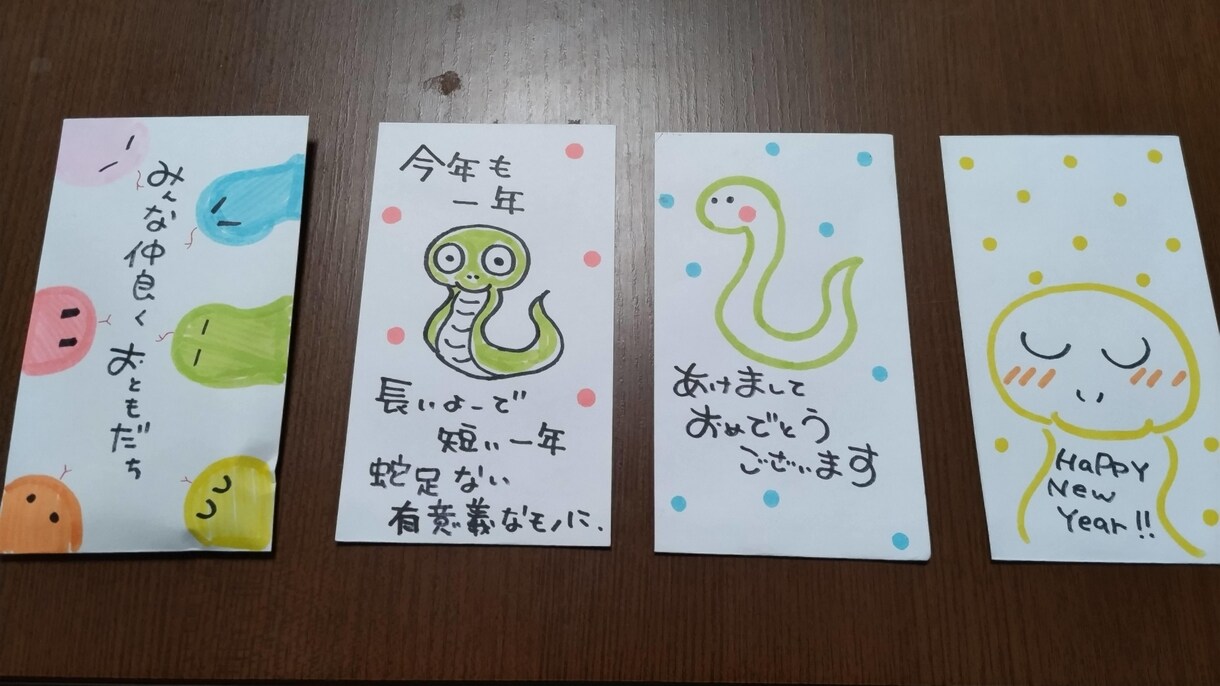 みんな仲良く おともだち
今年も
一年
長いよーで
短い一年
蛇足ない
有意義なモノに.
あけまして
おめでとう
ございます
HaPPY
New
Year!!